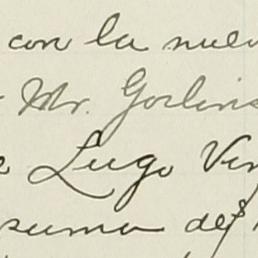 con la nuev
Mr. Goslins
Lugo Viñ
suma de